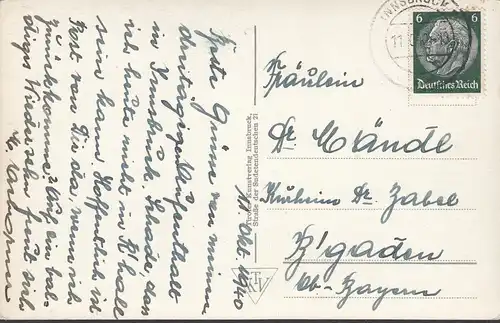 11. Okt. 1940
Beste Grüsse von meinem
dreitägigen Aufenthalt
in Innsbruck. Schade, dass
ich heute nicht in B'hall
sein kann. Hoffentlich ist
Post von Dir da, wenn ich
zurückkomme. Auf ein bal-
diges Wiedersehn freut sich
Tiroler Kunstverlag Innsbruck,
Straße der Sudetendeutschen 21
TKV
INNSBRUCK
11.
6 6
Deutsches Reich
Fräulein
Dr. Mändl
Kurheim Dr. Zabel
B'gaden
Ob-Bayern